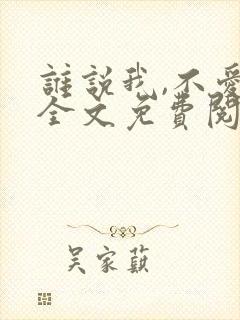 誰說我,不愛
全文免費閱
吳家蘇